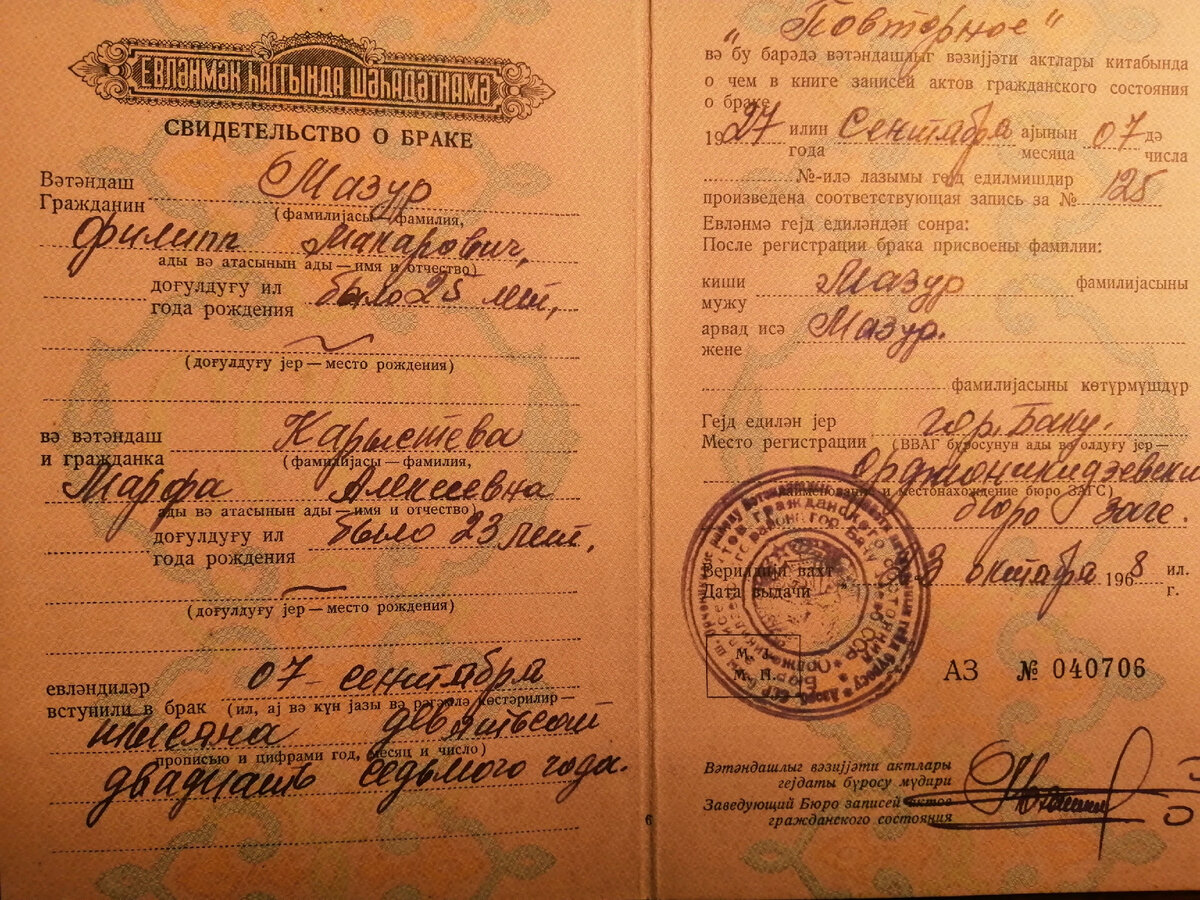 ЕВЛӘНМӘК ҺАГГЫНДА ШӘҺАДӘТНАМӘ
СВИДЕТЕЛЬСТВО О БРАКЕ
Вәтәндаш
Гражданин Мазур
(фамилијасы — фамилия,
Филипп Макарович,
ады вә атасынын ады — имя и отчество)
доғулдуғу ил
года рождения было 25 лет,
(доғулдуғу јер — место рождения)
вә вәтәндаш
и гражданка Карыстева
(фамилијасы — фамилия,
Марфа Алексеевна
ады вә атасынын ады — имя и отчество)
доғулдуғу ил
года рождения было 23 лет,
(доғулдуғу јер — место рождения)
евләндиләр 07 сентября
вступили в брак (ил, ај вә күн јазы вә рәгәмлә көстәрилир —
тысяча девятьсот
прописью и цифрами год, месяц и число)
двадцать седьмого года.
"Повторное"
вә бу барәдә вәтәндашлыг вәзијјәти актлары китабында
о чем в книге записей актов гражданского состояния
о браке
1927 илин сентября ајынын 07 дә
года месяца числа
№-илә лазымы гејд едилмишдир
произведена соответствующая запись за № 125
Евләнмә гејд едиләндән сонра:
После регистрации брака присвоены фамилии:
киши Мазур фамилијасыны
мужу
арвад исә Мазур.
жене
фамилијасыны көтүрмүшдүр
Гејд едилән јер гор. Баку.
Место регистрации (ВВАГ бүросунун ады вә олдуғу јер —
Орджоникидзевски
наименование и местонахождение бюро ЗАГС)
бюро Загс.
Верилдији вахт
Дата выдачи 3 октября 1968 ил.
г.
М. Ј.
М. П.
АЗ № 040706
Вәтәндашлыг вәзијјәти актлары
гејдаты бүросу мүдири
Заведующий Бюро записей актов
гражданского состояния
6